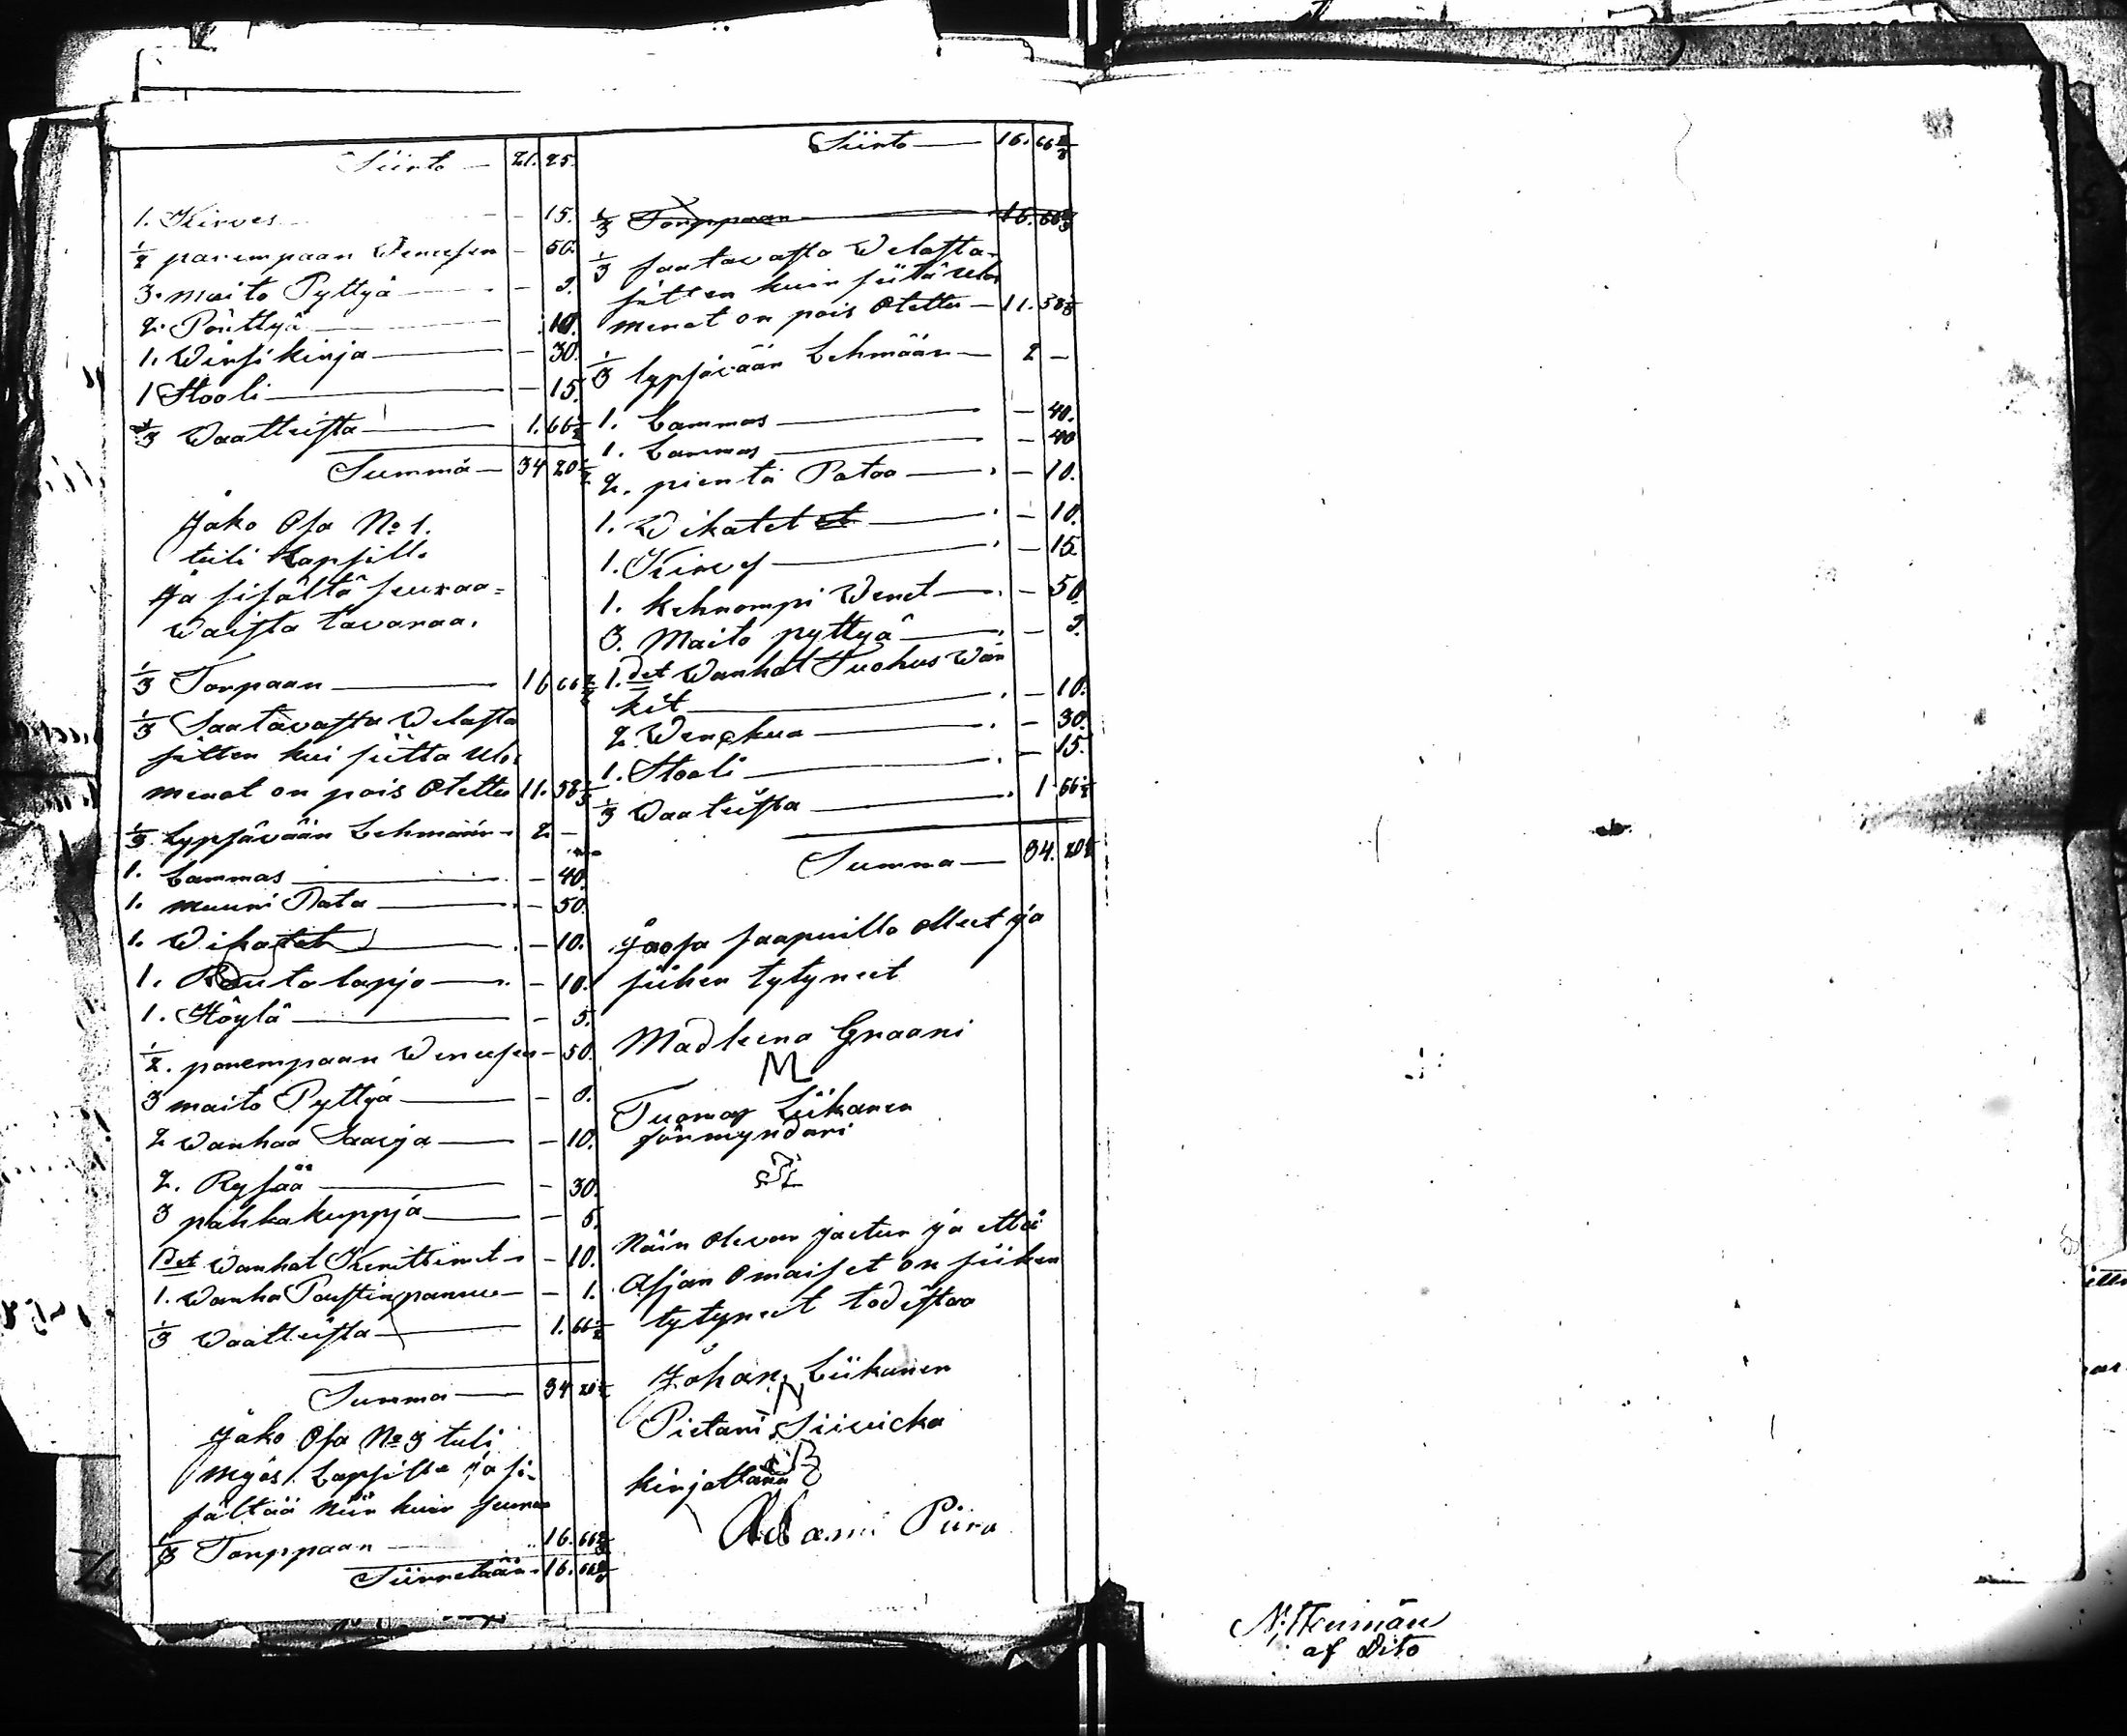 Siirto — 21. 25.
1. Kirves — 15.
1/2 parempaan Weneesen — 50.
3. maito Pyttyä — 9.
2. Pönttyä — 10.
1. Wirsi kirja — 30.
1 Stooli — 15.
1/3 Waatteista — 1. 66 1/2
Summa — 34 20 1/2
Jako Osa No 1.
tuli Lapsille
Ja sisältä seuraa=
waista tavaraa.
1/3 Torpaan — 16 66 2/3
1/3 Saatavasta Welasta
sitten kui siitta Ulos
menot on pois Otettu 11. 58 1/3
1/3 Lypsävään Lehmään — 2 —
1. Lammas — 40.
1. muuri Pata — 50.
1. Wikateh — 10.
1. Rauta lapjo — 10.
1. Höylä — 5.
1/2. parempaan Weneesen — 50.
3 maito Pyttyä — 9.
2 wanhaa Saavja — 10.
2. Rysää — 30.
3 pahkakuppjä — 5.
1 det Wanhat Kenttimet — 10.
1. Wanha Paistin pannu — 1.
1/3 Waatteista — 1. 66 1/2
Summa — 34 20 1/2
Jako Osa No 3 tuli
myös Lapsille ja si-
sältää niin kuin seuraa
1/3 Torppaan — 16. 66 2/3
Siirretään — 16. 66 2/3
Siirto — 16. 66 2/3
1/3 Torppaan — 16. 66 2/3
1/3 saatavasta Welasta
sitten kuin siitä Ulos
menot on pois Otettu — 11. 58 1/3
1/3 lypsävään Lehmään — 2 —
1. Lammas — 40.
1. Lammas — 40
2. pientä Pataa — 10.
1. Wikatet — 10.
1. Kirves — 15.
1. Kehnompi Wenet — 50.
3. Maito pyttyä — 9.
1. det Wanhat Tuohus Wär
kit — 10.
2. — 30.
1. Stooli — 15.
1/3 Waateista — 1. 66 1/2
Summa — 34. 20 1/2
Jaosa saapuilla olleet ja
siihen tytyneet
Madleena Graani
M
Tuomas Liikanen
förmyndari
Näin olevan jaetun ja että
Asjan Omaiset on siihen
tytyneet todistaa
Johan Liikanen
Pietari Siivicka
kirjottana
Adami Piira
af Dito